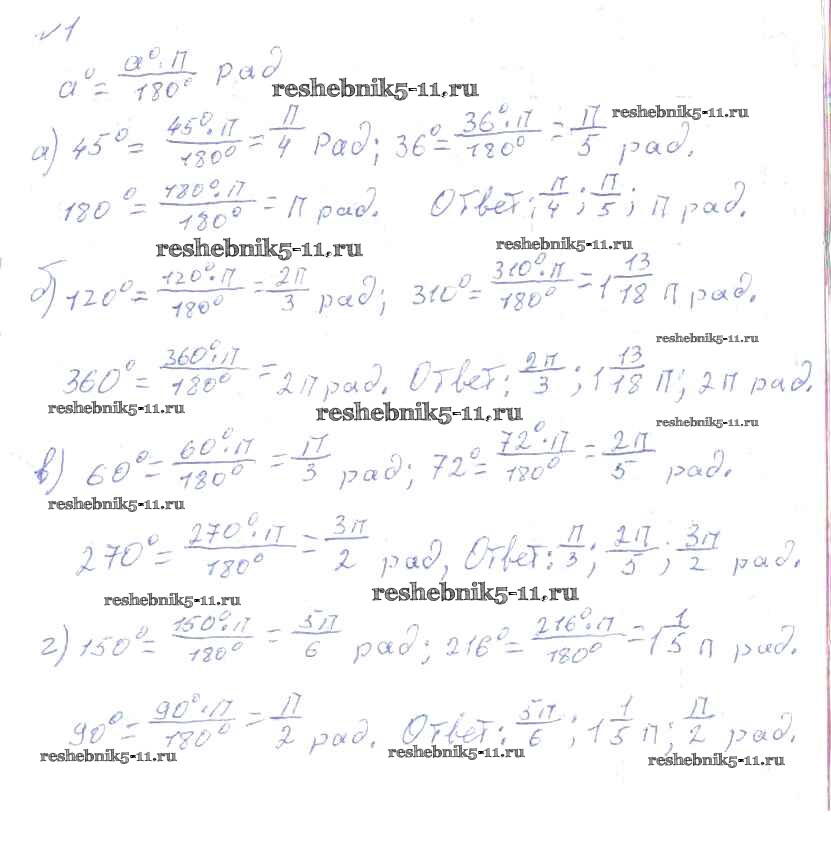 №1
a° = a°·П/180° рад
reshebnik5-11.ru
reshebnik5-11.ru
а) 45° = 45°·П/180° = П/4 рад; 36° = 36°·П/180° = П/5 рад.
180° = 180°·П/180° = П рад. Ответ: П/4; П/5; П рад.
reshebnik5-11.ru
reshebnik5-11.ru
б) 120° = 120°·П/180° = 2П/3 рад; 310° = 310°·П/180° = 1 13/18 П рад.
reshebnik5-11.ru
360° = 360°·П/180° = 2П рад. Ответ: 2П/3; 1 13/18 П; 2П рад.
reshebnik5-11.ru
reshebnik5-11.ru
reshebnik5-11.ru
в) 60° = 60°·П/180° = П/3 рад; 72° = 72°·П/180° = 2П/5 рад.
reshebnik5-11.ru
270° = 270°·П/180° = 3П/2 рад, Ответ: П/3; 2П/5; 3П/2 рад.
reshebnik5-11.ru
reshebnik5-11.ru
г) 150° = 150°·П/180° = 5П/6 рад; 216° = 216°·П/180° = 1 1/5 П рад.
90° = 90°·П/180° = П/2 рад. Ответ: 5П/6; 1 1/5 П; П/2 рад.
reshebnik5-11.ru
reshebnik5-11.ru
reshebnik5-11.ru